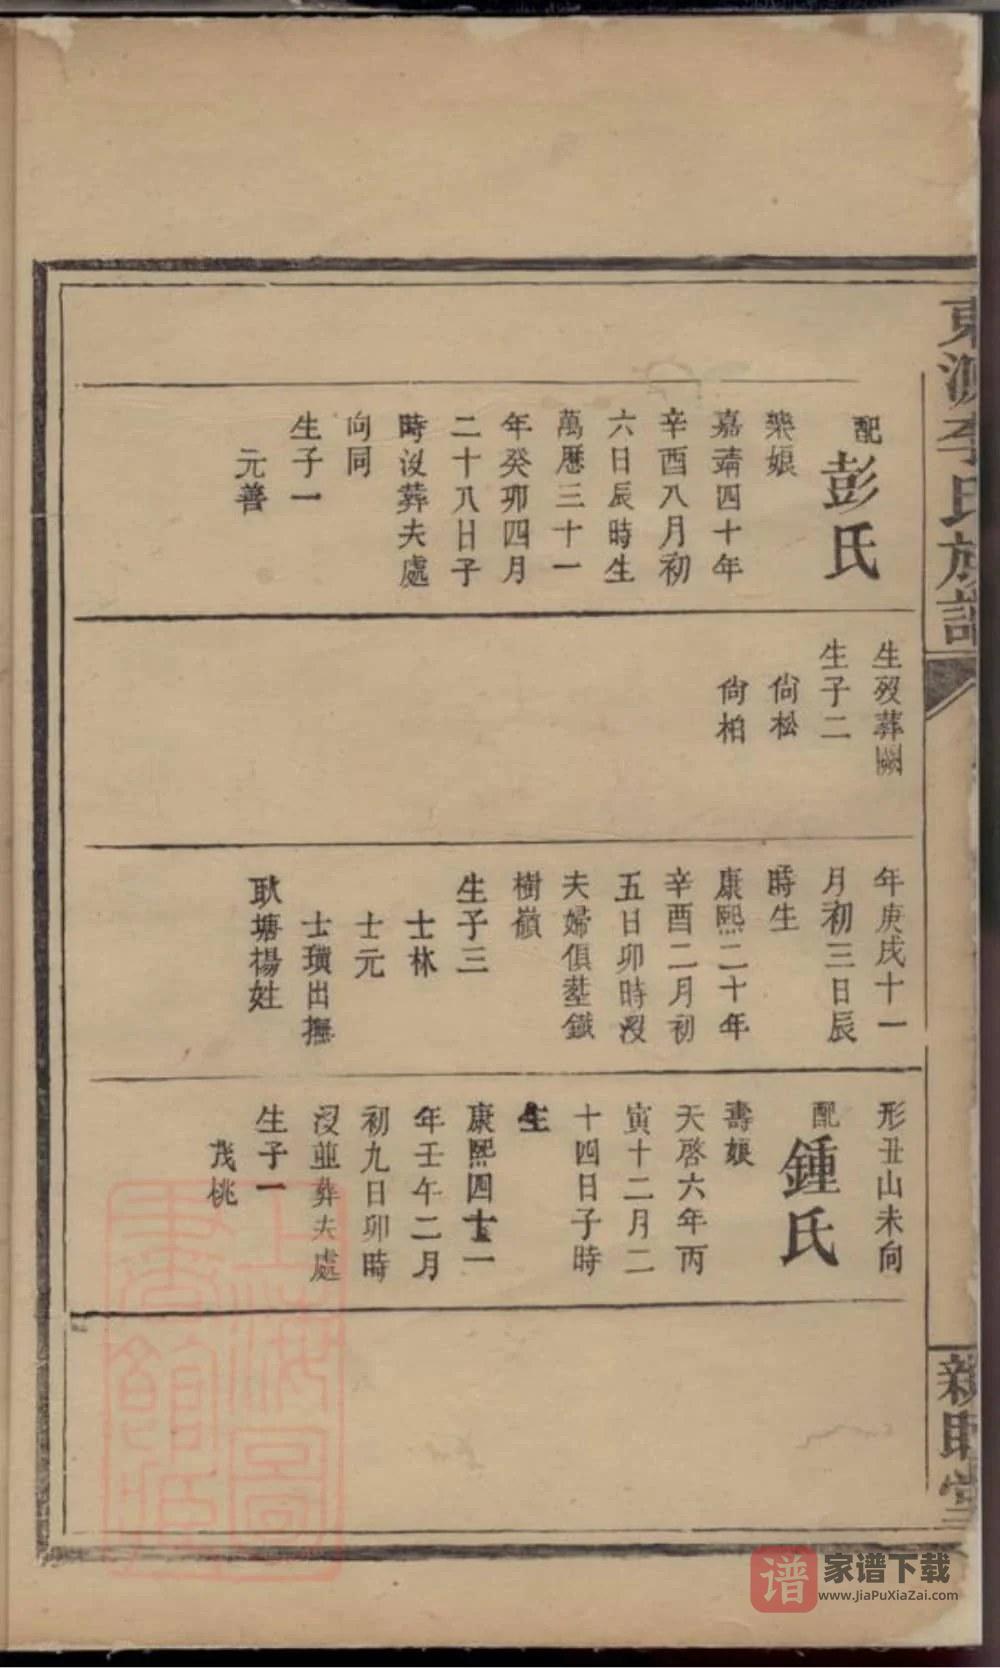 東源李氏族譜
配彭氏
樂娘
嘉靖四十年
辛酉八月初
六日辰時生
萬曆三十一
年癸卯四月
二十八日子
時沒葬夫處
向同
生子一
元善
生歿葬闕
生子二
尙松
尙柏
年庚戌十一
月初三日辰
時生
康熙二十年
辛酉二月初
五日卯時歿
夫婦俱塟鐵
樹嶺
生子三
士林
士元
士璜出撫
耿塘楊姓
形丑山未向
配鍾氏
壽娘
天啓六年丙
寅十二月二
十四日子時
生
康熙四十一
年壬午二月
初九日卯時
沒並葬夫處
生子一
茂桃
親睦堂
上海圖
書館藏
谱
家谱下载
www.JiaPuXiaZai.com